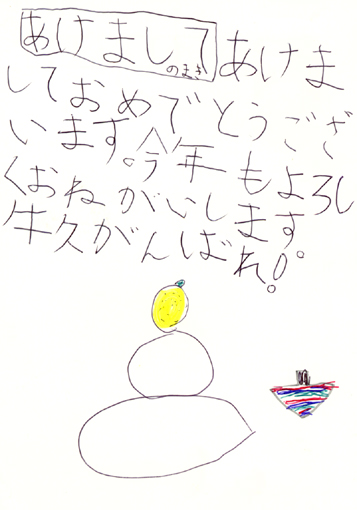 あけまして
のまき
あけま
しておめでとうござ
います。今年もよろし
くおねがいします。
牛久がんばれ!!